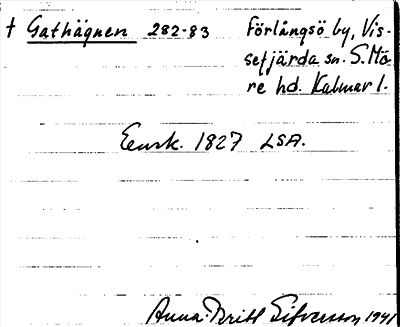 † Gathägnen 282-83 Förlångsö by, Vis-
sefjärda sn. S. Mö
re hd. Kalmar l.
Ensk. 1827 LSA.
Anna-Britt Silversson 1941